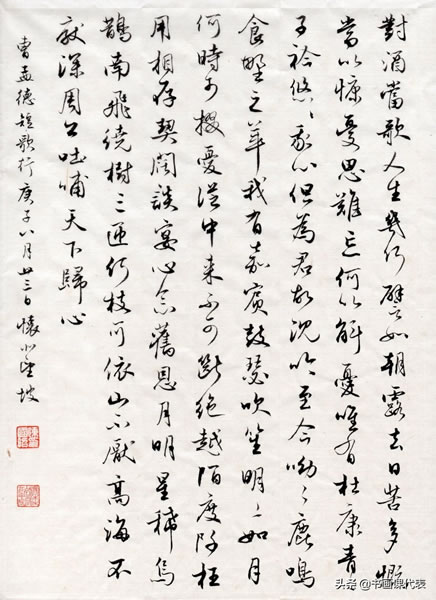 對酒當歌人生幾何譬如朝露去日苦多慨
當以慷憂思難忘何以解憂唯有杜康青
子衿悠〻我心但為君故沉吟至今呦〻鹿鳴
食野之苹我有嘉賓鼓瑟吹笙明〻如月
何時可掇憂從中来不可斷絕越陌度阡枉
用相存契闊談宴心念舊恩月明星稀烏
鵲南飛繞樹三匝何枝可依山不厭高海不
厭深周公吐哺天下歸心
曹孟德短歌行庚子八月廿三日懷坡
头条 @书画课代表